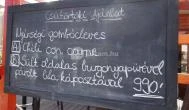 Csütörtöki Ajánlat
Nyírségi gombócleves
A, Chili con carne
B, Sült oldalas burgonyapürével
párolt lila káposztával 990.-